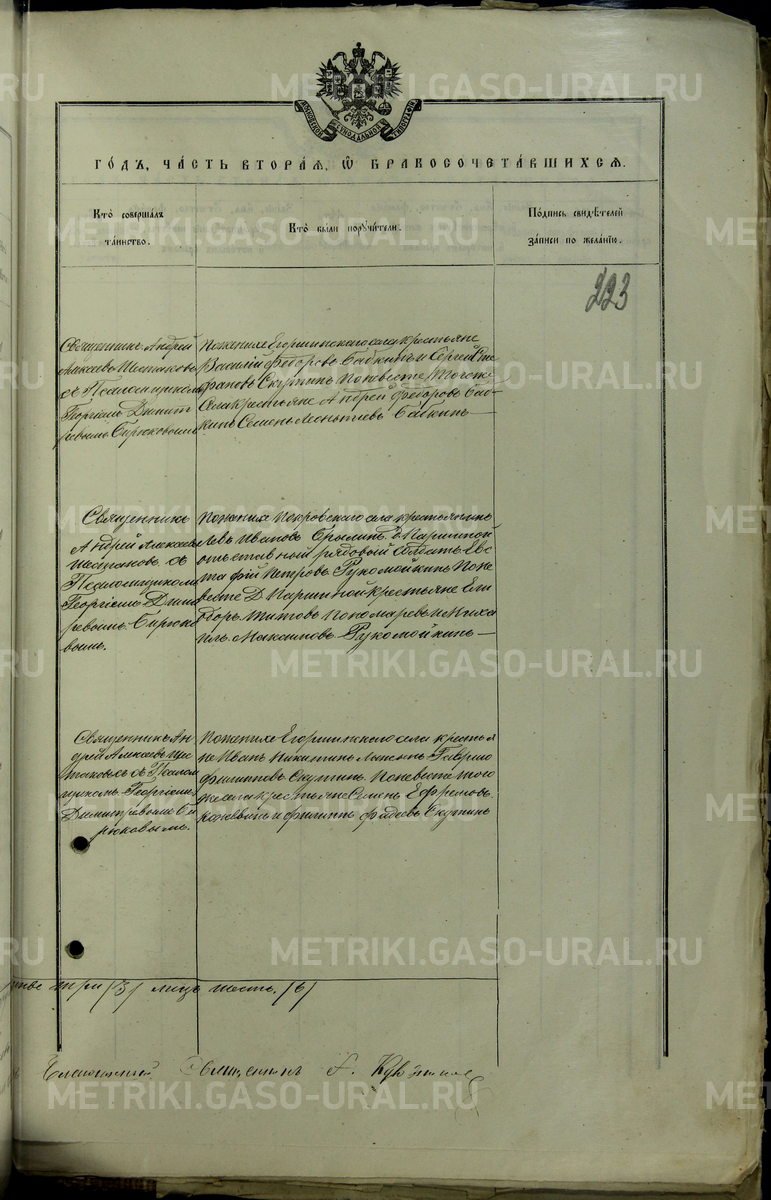 МОСКОВСКОЙ СѴНОДАЛЬНОЙ ТИПОГРАФІИ
ГО́ДЪ, ЧА́СТЬ ВТОРА́Я, Ѽ БРАКОСОЧЕТА́ВШИХСЯ.
Кто̀ совершалъ
та́инство.
Кто̀ были порꙋчи́тели.
По́дпись свидѣ́телей
за́писи по жела́нїю.
223
Священникъ Андрей
Алексѣевъ Шестаковъ
съ Псаломщикомъ
Георгіемъ Димит
ріевымъ Бирюковымъ
По женихѣ Егоршинскаго села крестьяне
Василій Федоровъ Бабкинъ и Сергей Сте
фановъ Скутинъ По невѣсте Тогоже
Села крестьяне Андрей Федоровъ Баб
кинъ Семенъ Леонтьевъ Бабкинъ
Священникъ
Андрей Алексѣевъ
Шестаковъ съ
Псаломщикомъ
Георгіемъ Дими
ріевымъ Бирюко
вымъ.
По женихѣ Покровскаго села крестьянинъ
Левъ Ивановъ Брылинъ Д. Паршиной
отъставный рядовый Солдатъ Евс
тафій Петровъ Рукомойкинъ По не
вѣсте Д Паршиной крестьяне Ели
доръ Титовъ Пономаревъ и Миха
илъ Максимовъ Рукомойкинъ
Священникъ Ан
дрей Алексѣевъ Шес
таковъ съ Псалом
щикомъ Георгіемъ
Димитріевымъ Би
рюковымъ.
По женихѣ Егоршинскаго села крестья
не Иванъ Никитинъ Гаврило
Филиповъ Скутинъ По невѣсте того
же села крестьяне Семенъ Ефремовъ
и Филиппъ Фадеевъ Скутинъ
три /3/ лицъ шесть. /6/
Священникъ
METRIKI.GASO-URAL.RU